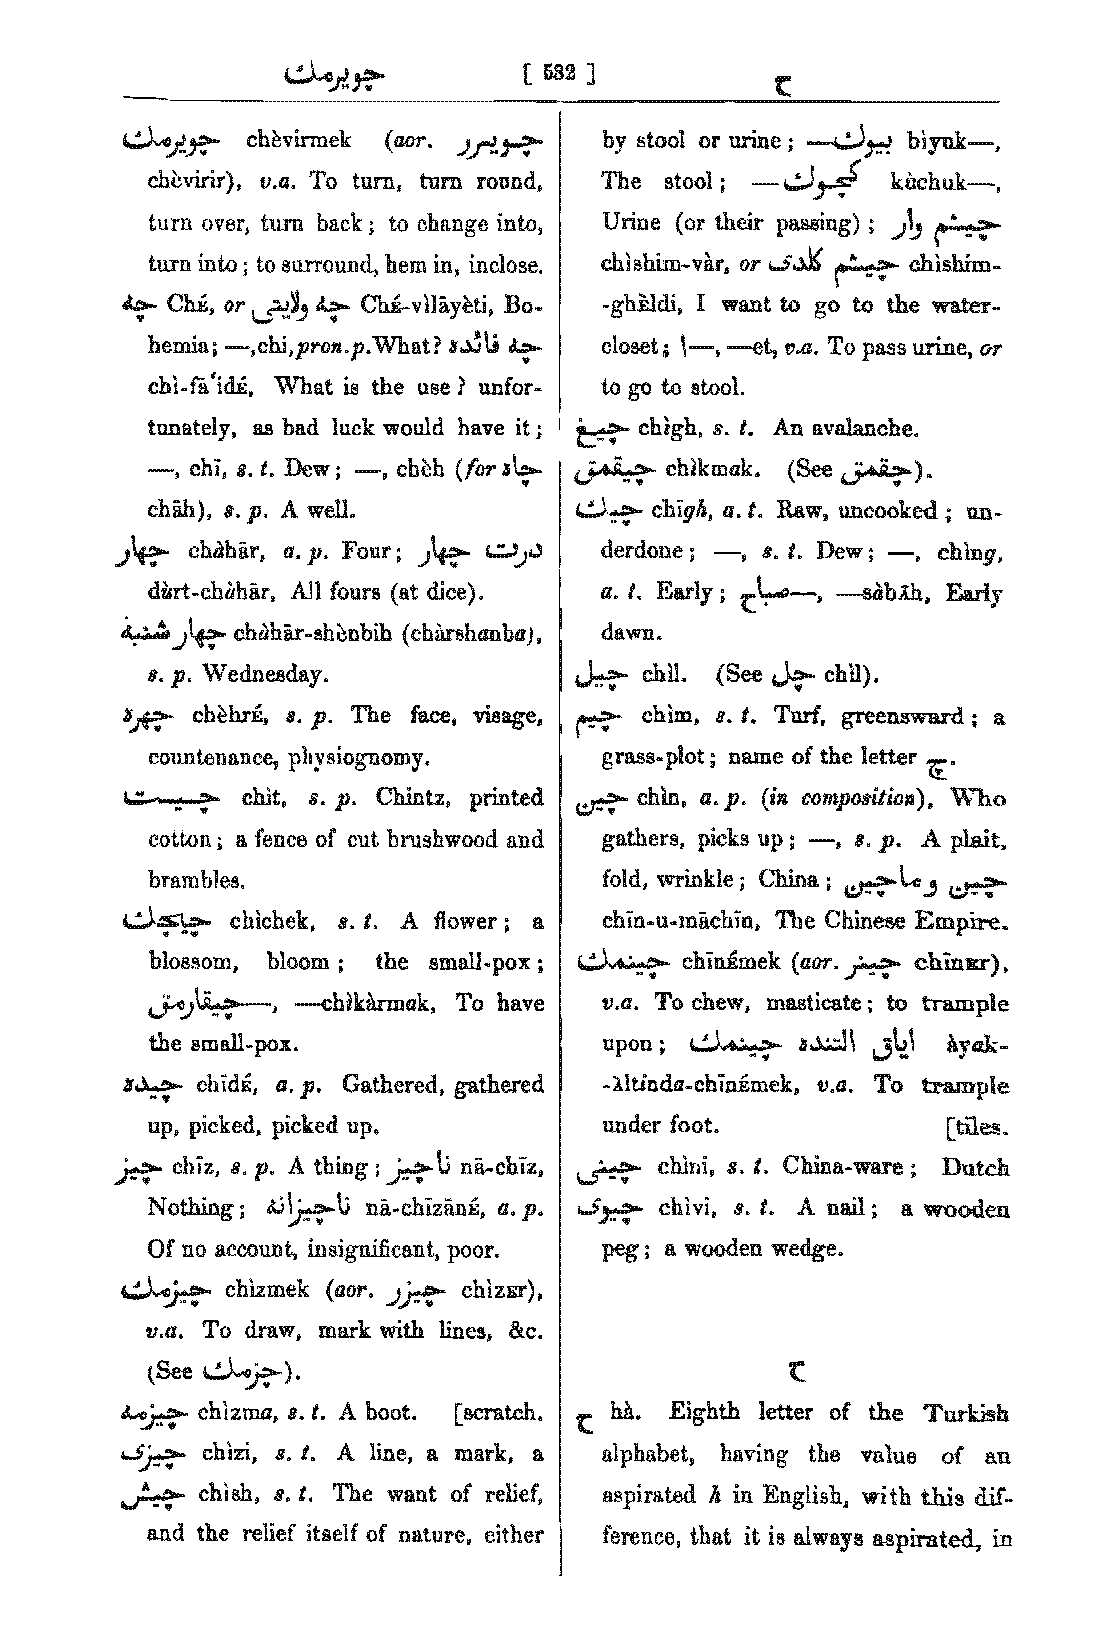 چويرمك [ 532 ] ح
چويرمك chèvirmek (aor. چويرر
chèvirir), v.a. To turn, turn round,
turn over, turn back; to change into,
turn into; to surround, hem in, inclose.
چه Ché, or چه ولايتى Ché-vìlāyèti, Bo-
hemia; —, chi, pron. p. What? چه فائده
chì-fāʿidé, What is the use? unfor-
tunately, as bad luck would have it;
—, chī, s. t. Dew; —, chèh (for چاه
chāh), s. p. A well.
چهار chàhār, a. p. Four; درت چهار
dùrt-chàhār, All fours (at dice).
چهار شنبه chàhār-shènbih (chàrshanba),
s. p. Wednesday.
چهره chèhré, s. p. The face, visage,
countenance, physiognomy.
چيت chìt, s. p. Chintz, printed
cotton; a fence of cut brushwood and
brambles.
چيچك chìchek, s. t. A flower; a
blossom, bloom; the small-pox;
—چيقارمق, —chìkàrmak, To have
the small-pox.
چيده chīdé, a. p. Gathered, gathered
up, picked, picked up.
چيز chīz, s. p. A thing; ناچيز nā-chīz,
Nothing; ناچيزانه nā-chīzāné, a. p.
Of no account, insignificant, poor.
چيزمك chìzmek (aor. چيزر chìzᴇr),
v.a. To draw, mark with lines, &c.
(See چزمك).
چيزمه chìzma, s. t. A boot. [scratch.
چيزى chìzi, s. t. A line, a mark, a
چيش chìsh, s. t. The want of relief,
and the relief itself of nature, either
by stool or urine; بيوك— bìyuk—,
The stool; كچوك— kùchuk—,
Urine (or their passing); چيشم وار
chìshim-vàr, or چيشم كلدى chìshim-
-ghèldi, I want to go to the water-
closet; ا—, —et, v.a. To pass urine, or
to go to stool.
چيغ chìgh, s. t. An avalanche.
چيقمق chìkmak. (See چقمق).
چيك chīgh, a. t. Raw, uncooked; un-
derdone; —, s. t. Dew; —, chìng,
a. t. Early; صباح—, —sàbāh, Early
dawn.
چيل chìl. (See چل chìl).
چيم chìm, s. t. Turf, greensward; a
grass-plot; name of the letter چ.
چين chìn, a. p. (in composition), Who
gathers, picks up; —, s. p. A plait,
fold, wrinkle; China; چين و ماچين
chīn-u-māchīn, The Chinese Empire.
چينمك chīnémek (aor. چينر chīnᴇr),
v.a. To chew, masticate; to trample
upon; اياق التنده چينمك àyak-
-àltinda-chīnémek, v.a. To trample
under foot. [tiles.
چينى chìni, s. t. China-ware; Dutch
چيوى chìvi, s. t. A nail; a wooden
peg; a wooden wedge.
ح
ح hà. Eighth letter of the Turkish
alphabet, having the value of an
aspirated h in English, with this dif-
ference, that it is always aspirated, in